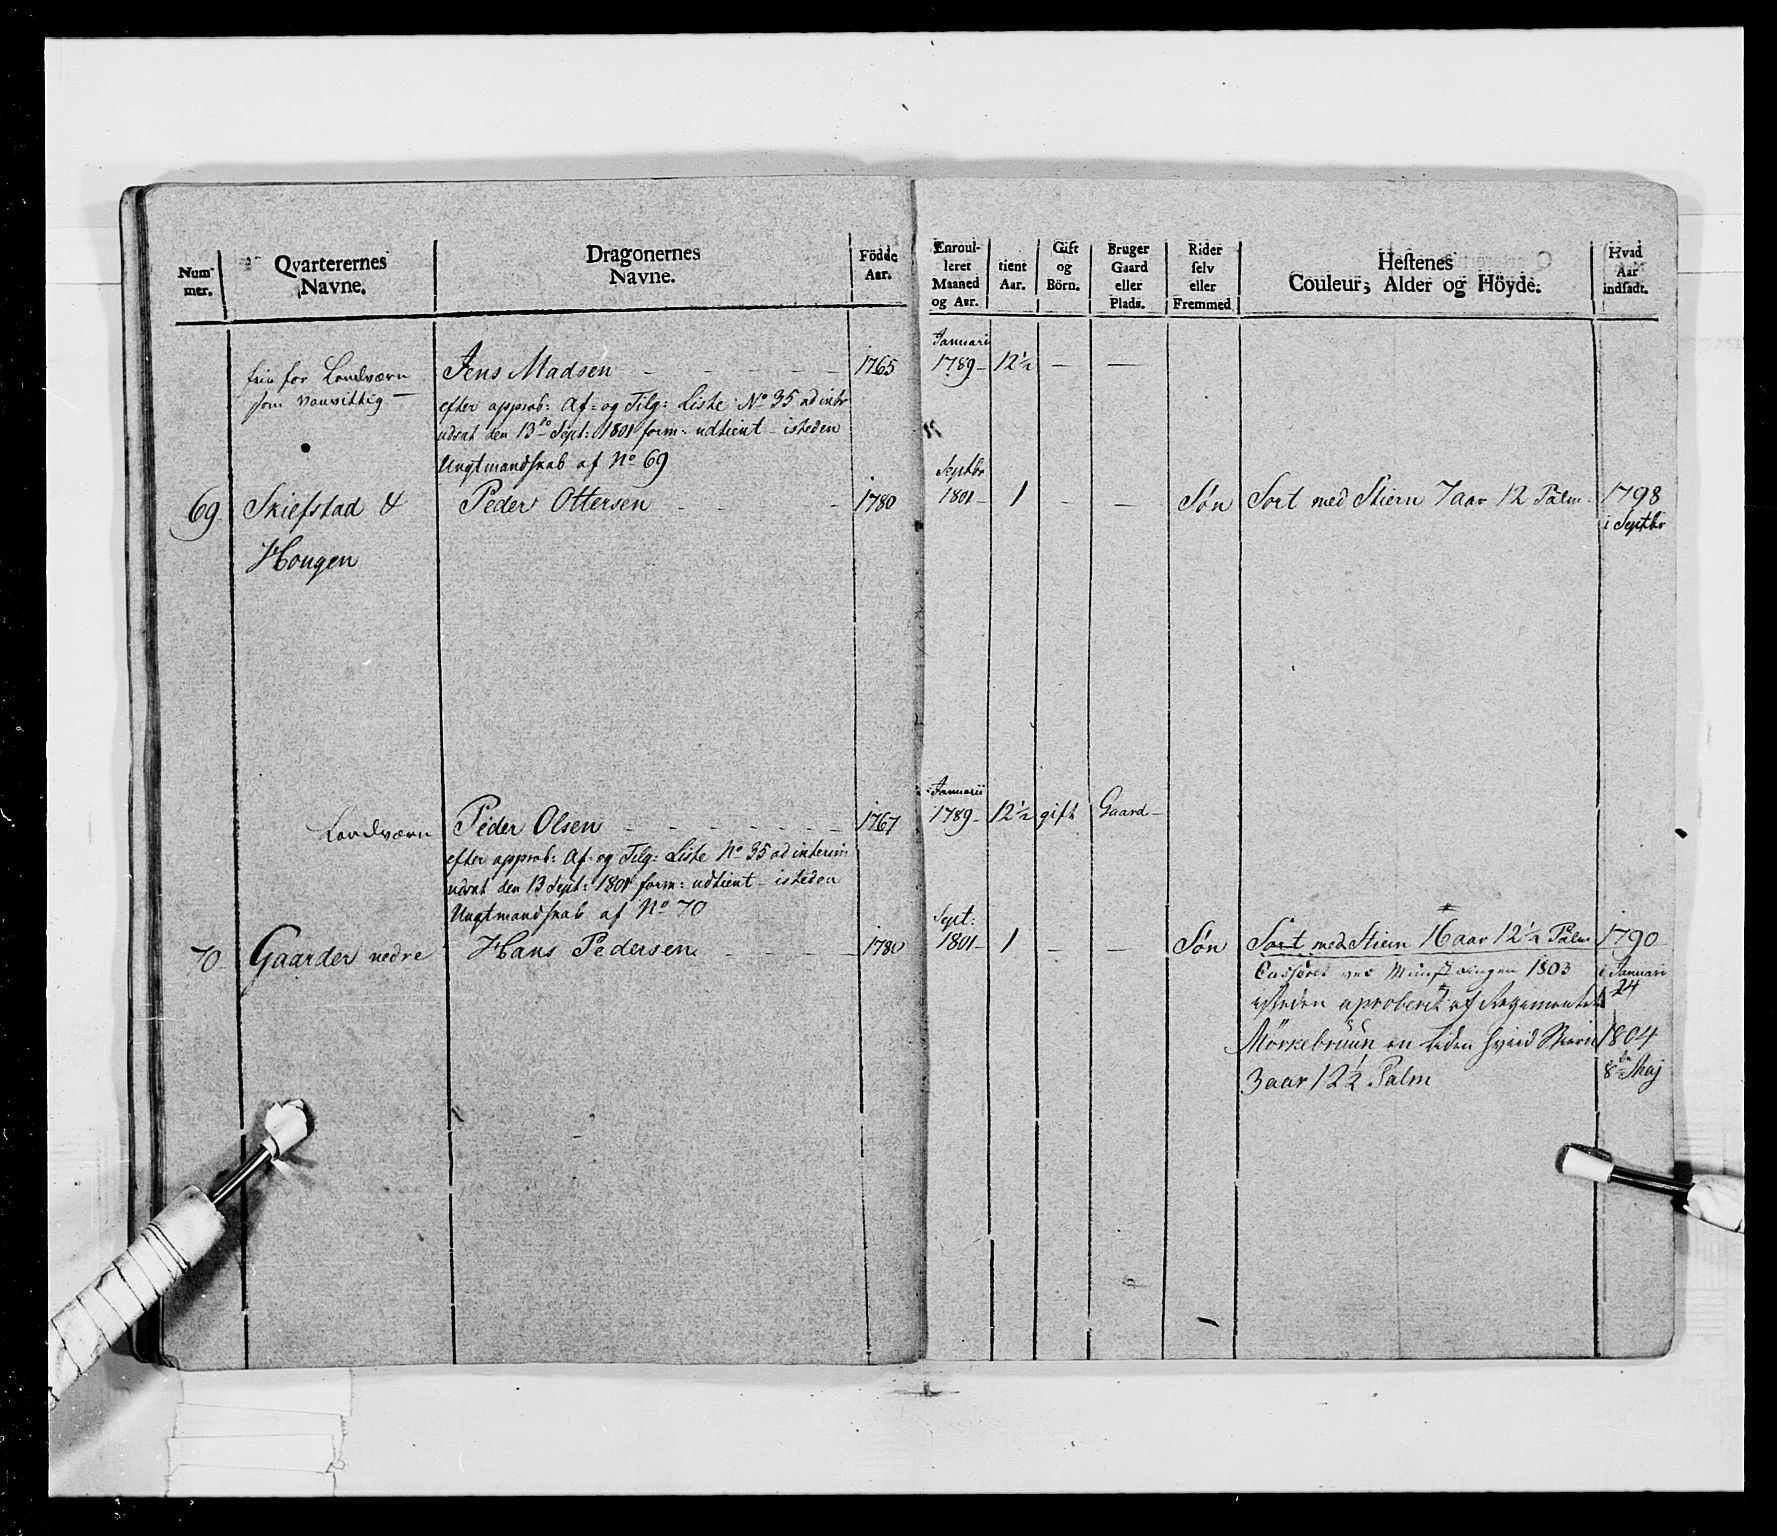 Num-
mer.
Qvarterernes
Navne.
Dragonernes
Navne.
Födde
Aar.
Enroul-
leret
Maaned
og Aar.
tient
Aar.
Gift
og
Börn.
Bruger
Gaard
eller
Plads.
Rider
selv
eller
Fremmed
Hestenes
Couleur, Alder og Höyde.
Hvad
Aar
indsadt.
frie for Landværn
som vanvittig —
Jens Madsen - - - - -
1765
Januarii
1789 -
12½
—
—
efter approb: Af- og Tilg: Liste No 35 ad intr
udsat den 13de Sept: 1801 form: udtient - isteden
Ungtmandskab af No 69
69
Skiefstad &
Hougen
Peder Ottersen - - -
1780
Septbr
1801 -
1
-
—
Søn
Sort med Stiern 7 aar 12 Palm -
1798
i Septbr
Landværn
Peder Olsen - - - - - -
1767
Januarii
1789 -
12½
gift
Gaard -
efter approb: Af- og Tilg: Liste No 35 ad interim
udsat den 13 Sept: 1801 form: udtient - isteden
Ungtmandskab af No 70
70 -
Gaarder nedre
Hans Pedersen - - - -
1780
Sept:
1801 -
1
-
—
Søn
Sort med Stiern 16 aar 12½ Palm
1790
i Januari
24
Cassøret ved Mønstringen 1803
isteden aproberet af Regimentet
Mörkebruun en liden hvid Stiern
1804
8de Maj
3 aar 12½ Palm